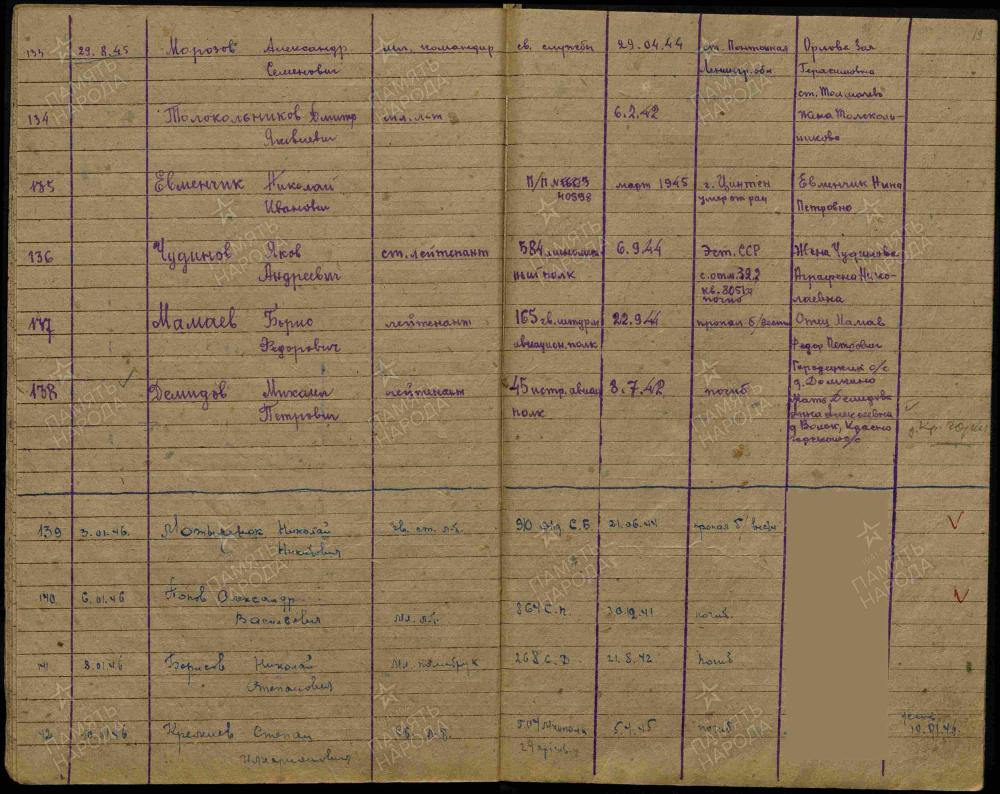 19
29.8.45 Морозов Александр мл. командир св. службы 29.04.44 ст. Понтонная Орлова Зоя
Семенович Ленингр. обл Герасимовна
ст. Толмачево
134 Толокольников Дмитр мл. л-т 6.2.42 Жена Толоколь-
Яковлевич никова
135 Евменчик Николай П/П № март 1945 г. Цинтен Евменчик Нина
Иванович 40598 умер от ран Петровно
136 Чудинов Яков ст. лейтенант 584 6.9.44 Эст. ССР Жена Чудинова
Андреевич ный полк с.отм.322 Аграфена Нико-
кв. 8051а лаевна
погиб
137 Мамаев Борис лейтенант 165 гв. штурм 22.9.44 пропал б/вести Отец Мамаев
Федорович авиацион. полк Федор Петрович
Городецкий с/с
138 Демидов Михаил лейтенант 45 истр. авиац 8.7.42 погиб д. Домкино
Петрович полк Мать Демидова
Анна Алексеевна
д Волок, Красно
горского с/с
139 3.01.46. Николай гв. ст. л-т. 90 С.Д. 21.06.44 пропал б/вести
Никитович
140 6.01.46 Попов Александр
Васильевич мл. л-т. 864 С.П. 30.12.41 погиб.
141 8.01.46 Борисов Николай мл. 268 С.Д. 21.8.42 погиб
Степанович
42 10.01.46 Степан 5.4.45 погиб 10.01.46.
Илларионович
ПАМЯТЬ
НАРОДА